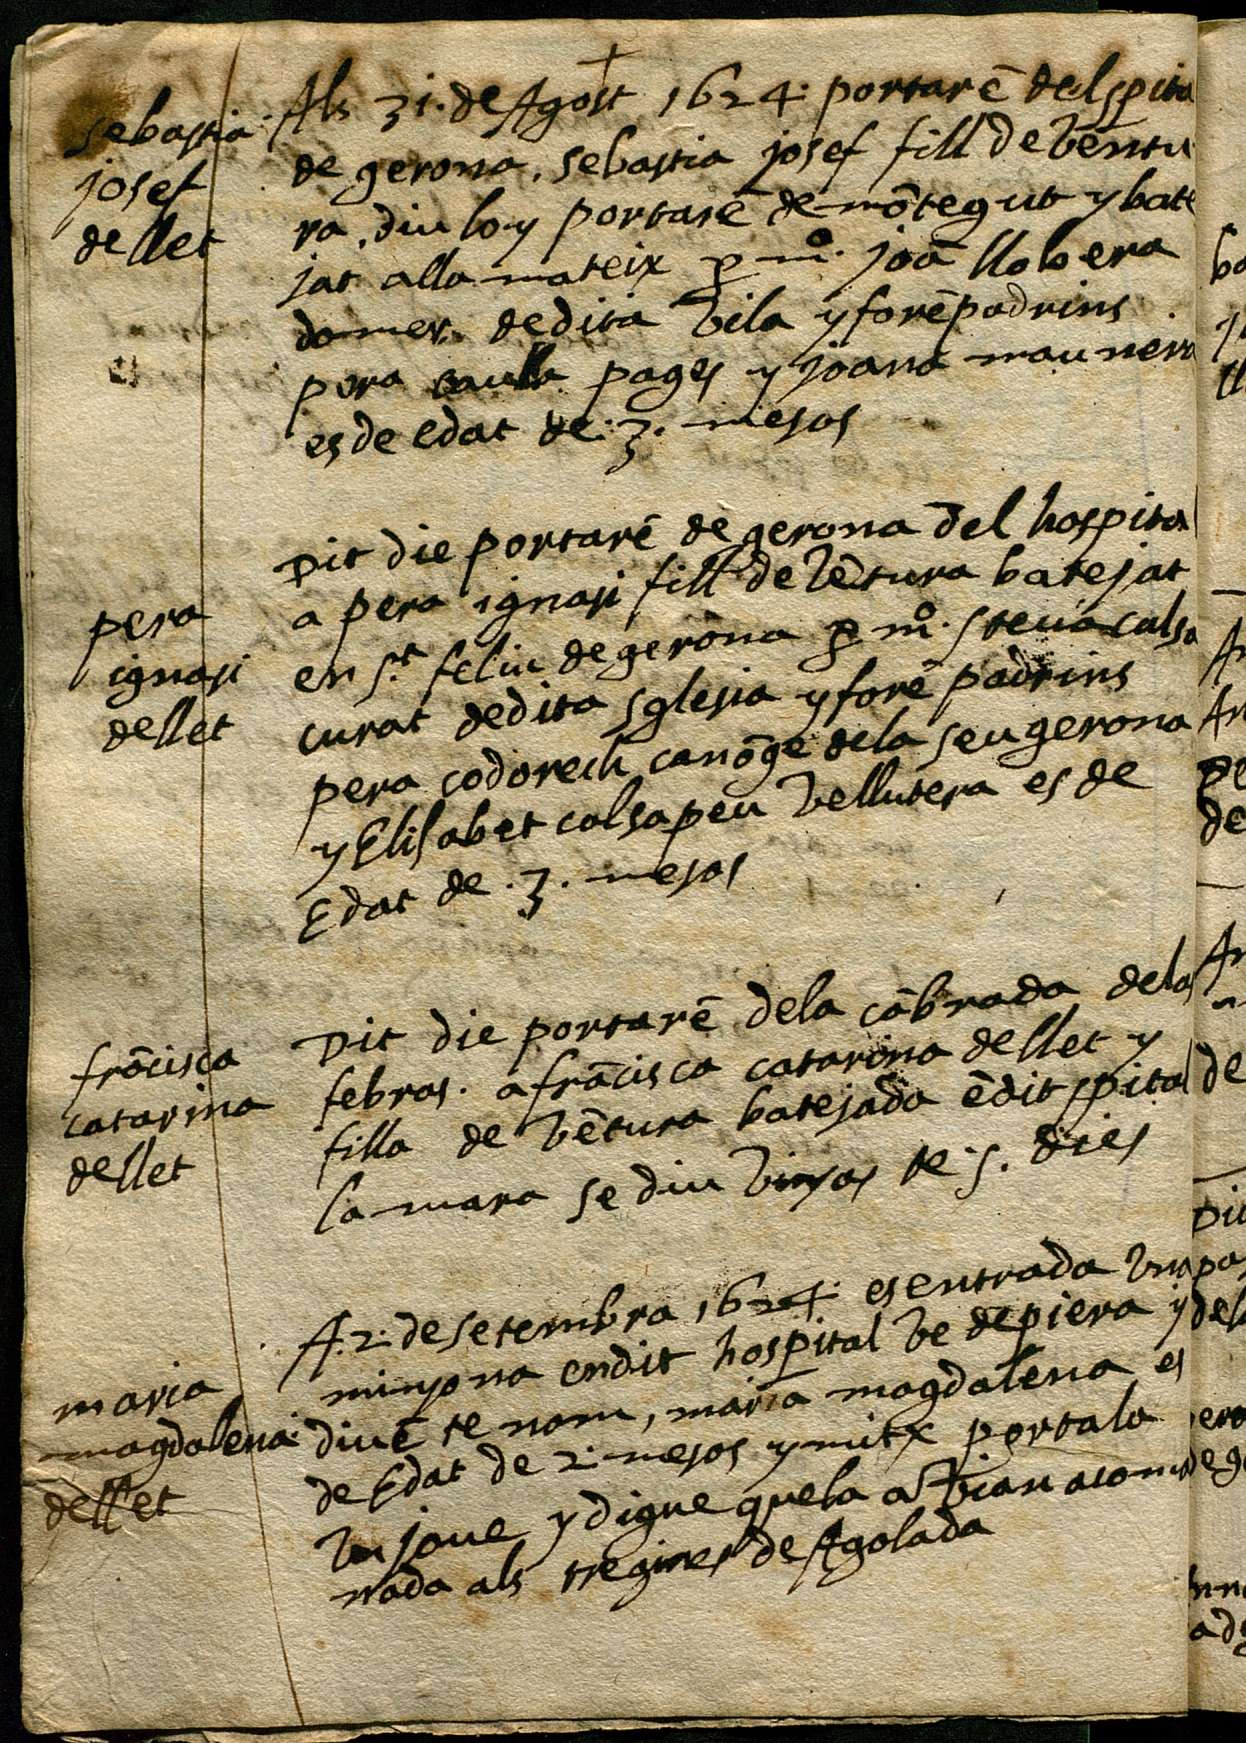 +
sebastia
josef
de llet
Als 31. de Agost 1624. portarē del spita
de gerona. sebastia josef fill de Ventu
ra, diu lo y portarē de mōtegut y bate
jat alla mateix p mº. joā llobera
domer. de dita Vila y forē padrins
pera caula pages y joana maunera
es de edat de. 3. mesos
pera
ignasi
de llet
Dit die portarē de gerona del hospital
a pera ignasi fill de Vētura batejat
en St. feliu de gerona p mº. steua calsa
curat de dita sglesia y forē padrins
pera codorech canōge de la seu gerona
y Elisabet calsapeu Vellutera es de
Edat de. 3. mesos
frācisca
catarina
de llet
Dit die portarē de la cābrada de las
febras. a frācisca catarina de llet y
filla de Vētura batejada ē dit spital
la mara se diu Vinyas te. 5. dies
maria
magdalena
de llet
A. 2. de setembra 1624. es entrada Vna
minyona en dit hospital Ve de piera y
diuē te nom, maria magdalena es
de Edat de 2. mesos y mitx portala
Vn joue y digue que la avian acoma
nada als treginers de Agolada